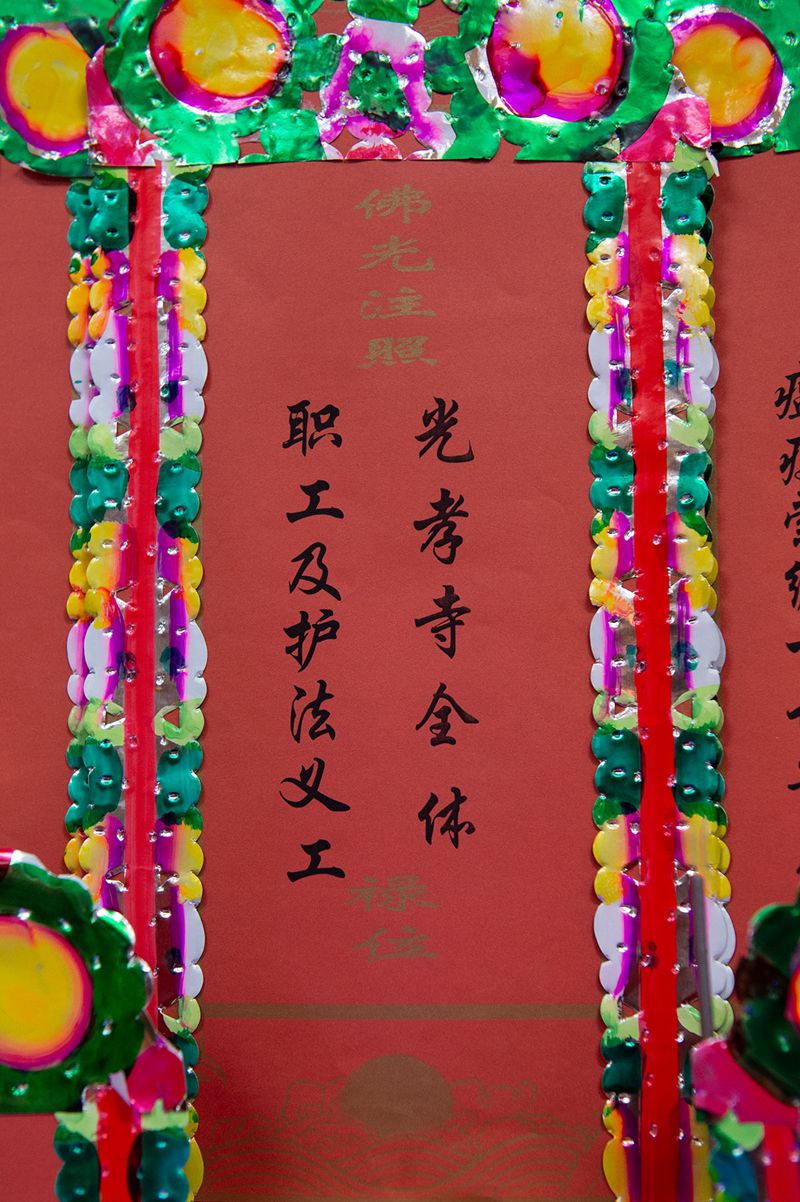 佛光注照
光孝寺全体
职工及护法义工
禄位